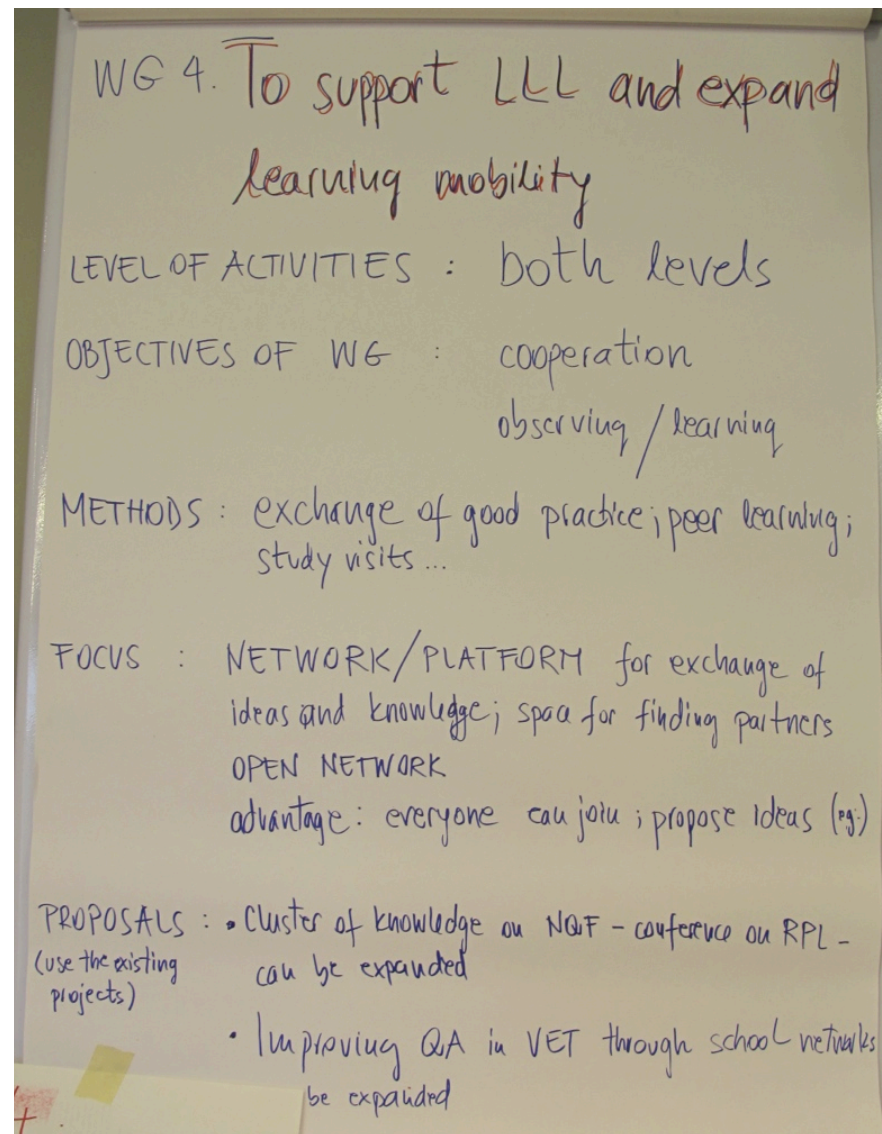 WG 4. To support LLL and expand
learning mobility
LEVEL OF ACTIVITIES : both levels
OBJECTIVES OF WG : cooperation
observing / learning
METHODS : exchange of good practice; peer learning;
study visits...
FOCUS : NETWORK/PLATFORM for exchange of
ideas and knowledge; space for finding partners
OPEN NETWORK
advantage: everyone can join; propose ideas (eg.)
PROPOSALS : • Cluster of knowledge on NQF - conference on RPL -
(use the existing can be expanded
projects)
• Improving QA in VET through school networks
be expanded